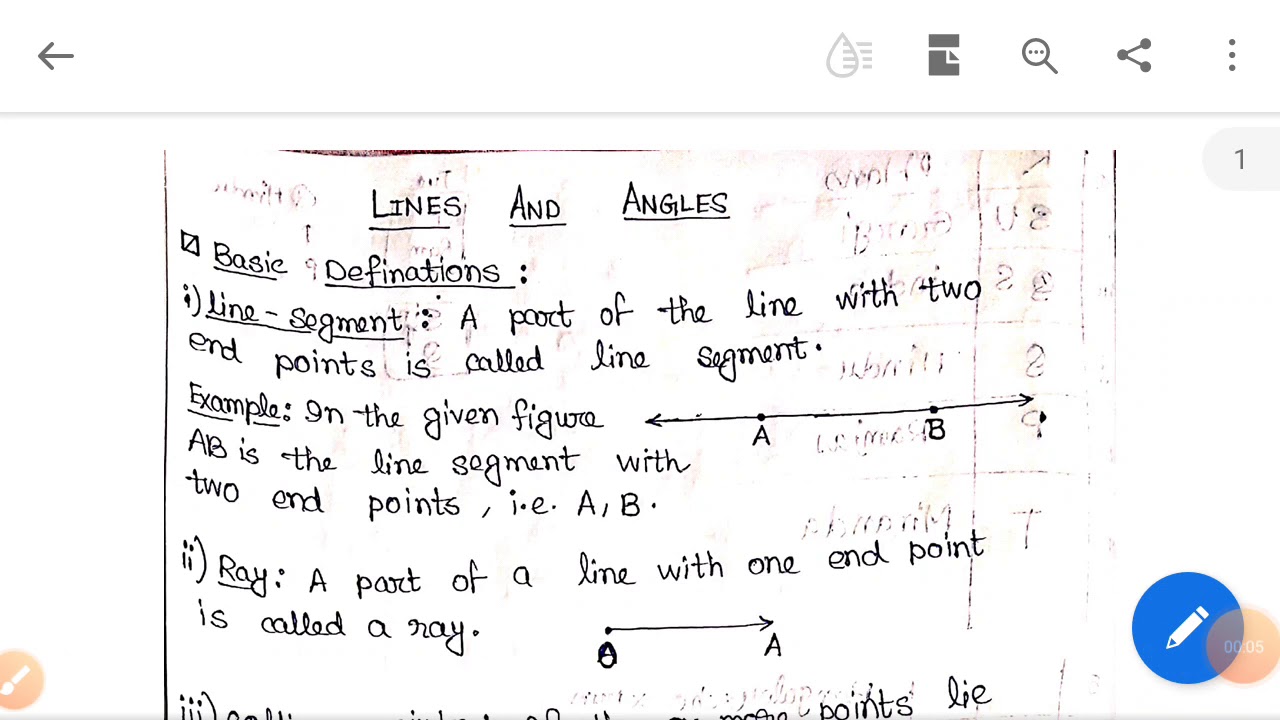 1
LINES AND ANGLES
Basic Definations :
i) line - segment : A part of the line with two
end points is called line segment.
Example : In the given figure
A B
AB is the line segment with
two end points , i.e. A, B .
ii) Ray : A part of a line with one end point
is called a ray.
O A
iii) points lie
00:05